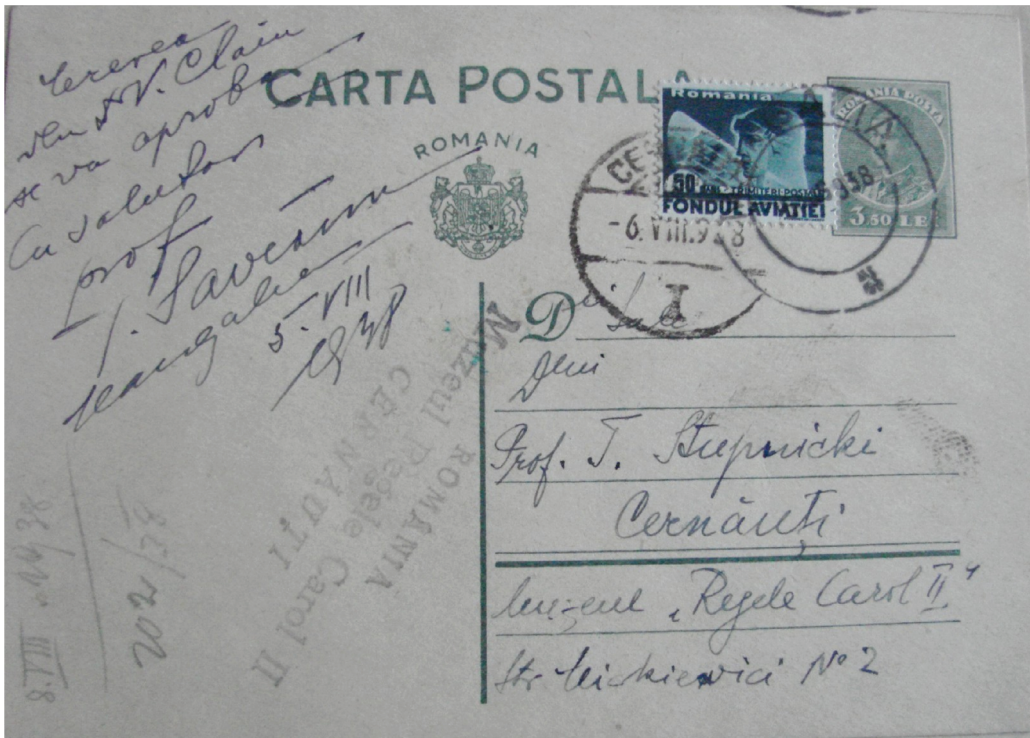 Cererea
dlui V. Clain
se va aproba
Cu salutari
prof
5.VIII
1938
CARTA POSTALA
ROMANIA
Romania
50 BANI - TRIMITERI POSTALE
FONDUL AVIATIEI
ROMANIA POSTA
3.50 LEI
-6.VIII.938
1
D sale
Dlui
Prof. T. Stupnicki
Cernăuți
Muzeul „Regele Carol II“
Str Mickiewici No 2
ROMÂNIA
Muzeul Regele Carol II
CERNAUTI
8.VIII 1938